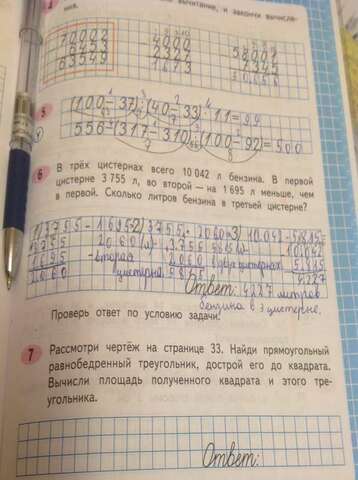 вычитание, и закончи вычисле-
ния.
70002
6453
63549
5
(100-37):(40-33)·11=99
556-(317-310)·(100-92)=500
6
В трёх цистернах всего 10 042 л бензина. В первой
цистерне 3 755 л, во второй — на 1 695 л меньше, чем
в первой. Сколько литров бензина в третьей цистерне?
1) 3755-1695 2) 3755+2060 3) 10042-5815=
3755 2060(л) 3755 5815(л) 10042
1695 - вторая 2060 в двух цистернах 5815
2060 цистерна 5815 4227
Ответ: 4227 литров
бензина в 3 цистерне.
Проверь ответ по условию задачи.
7
Рассмотри чертёж на странице 33. Найди прямоугольный
равнобедренный треугольник, дострой его до квадрата.
Вычисли площадь полученного квадрата и этого тре-
угольника.
Ответ: